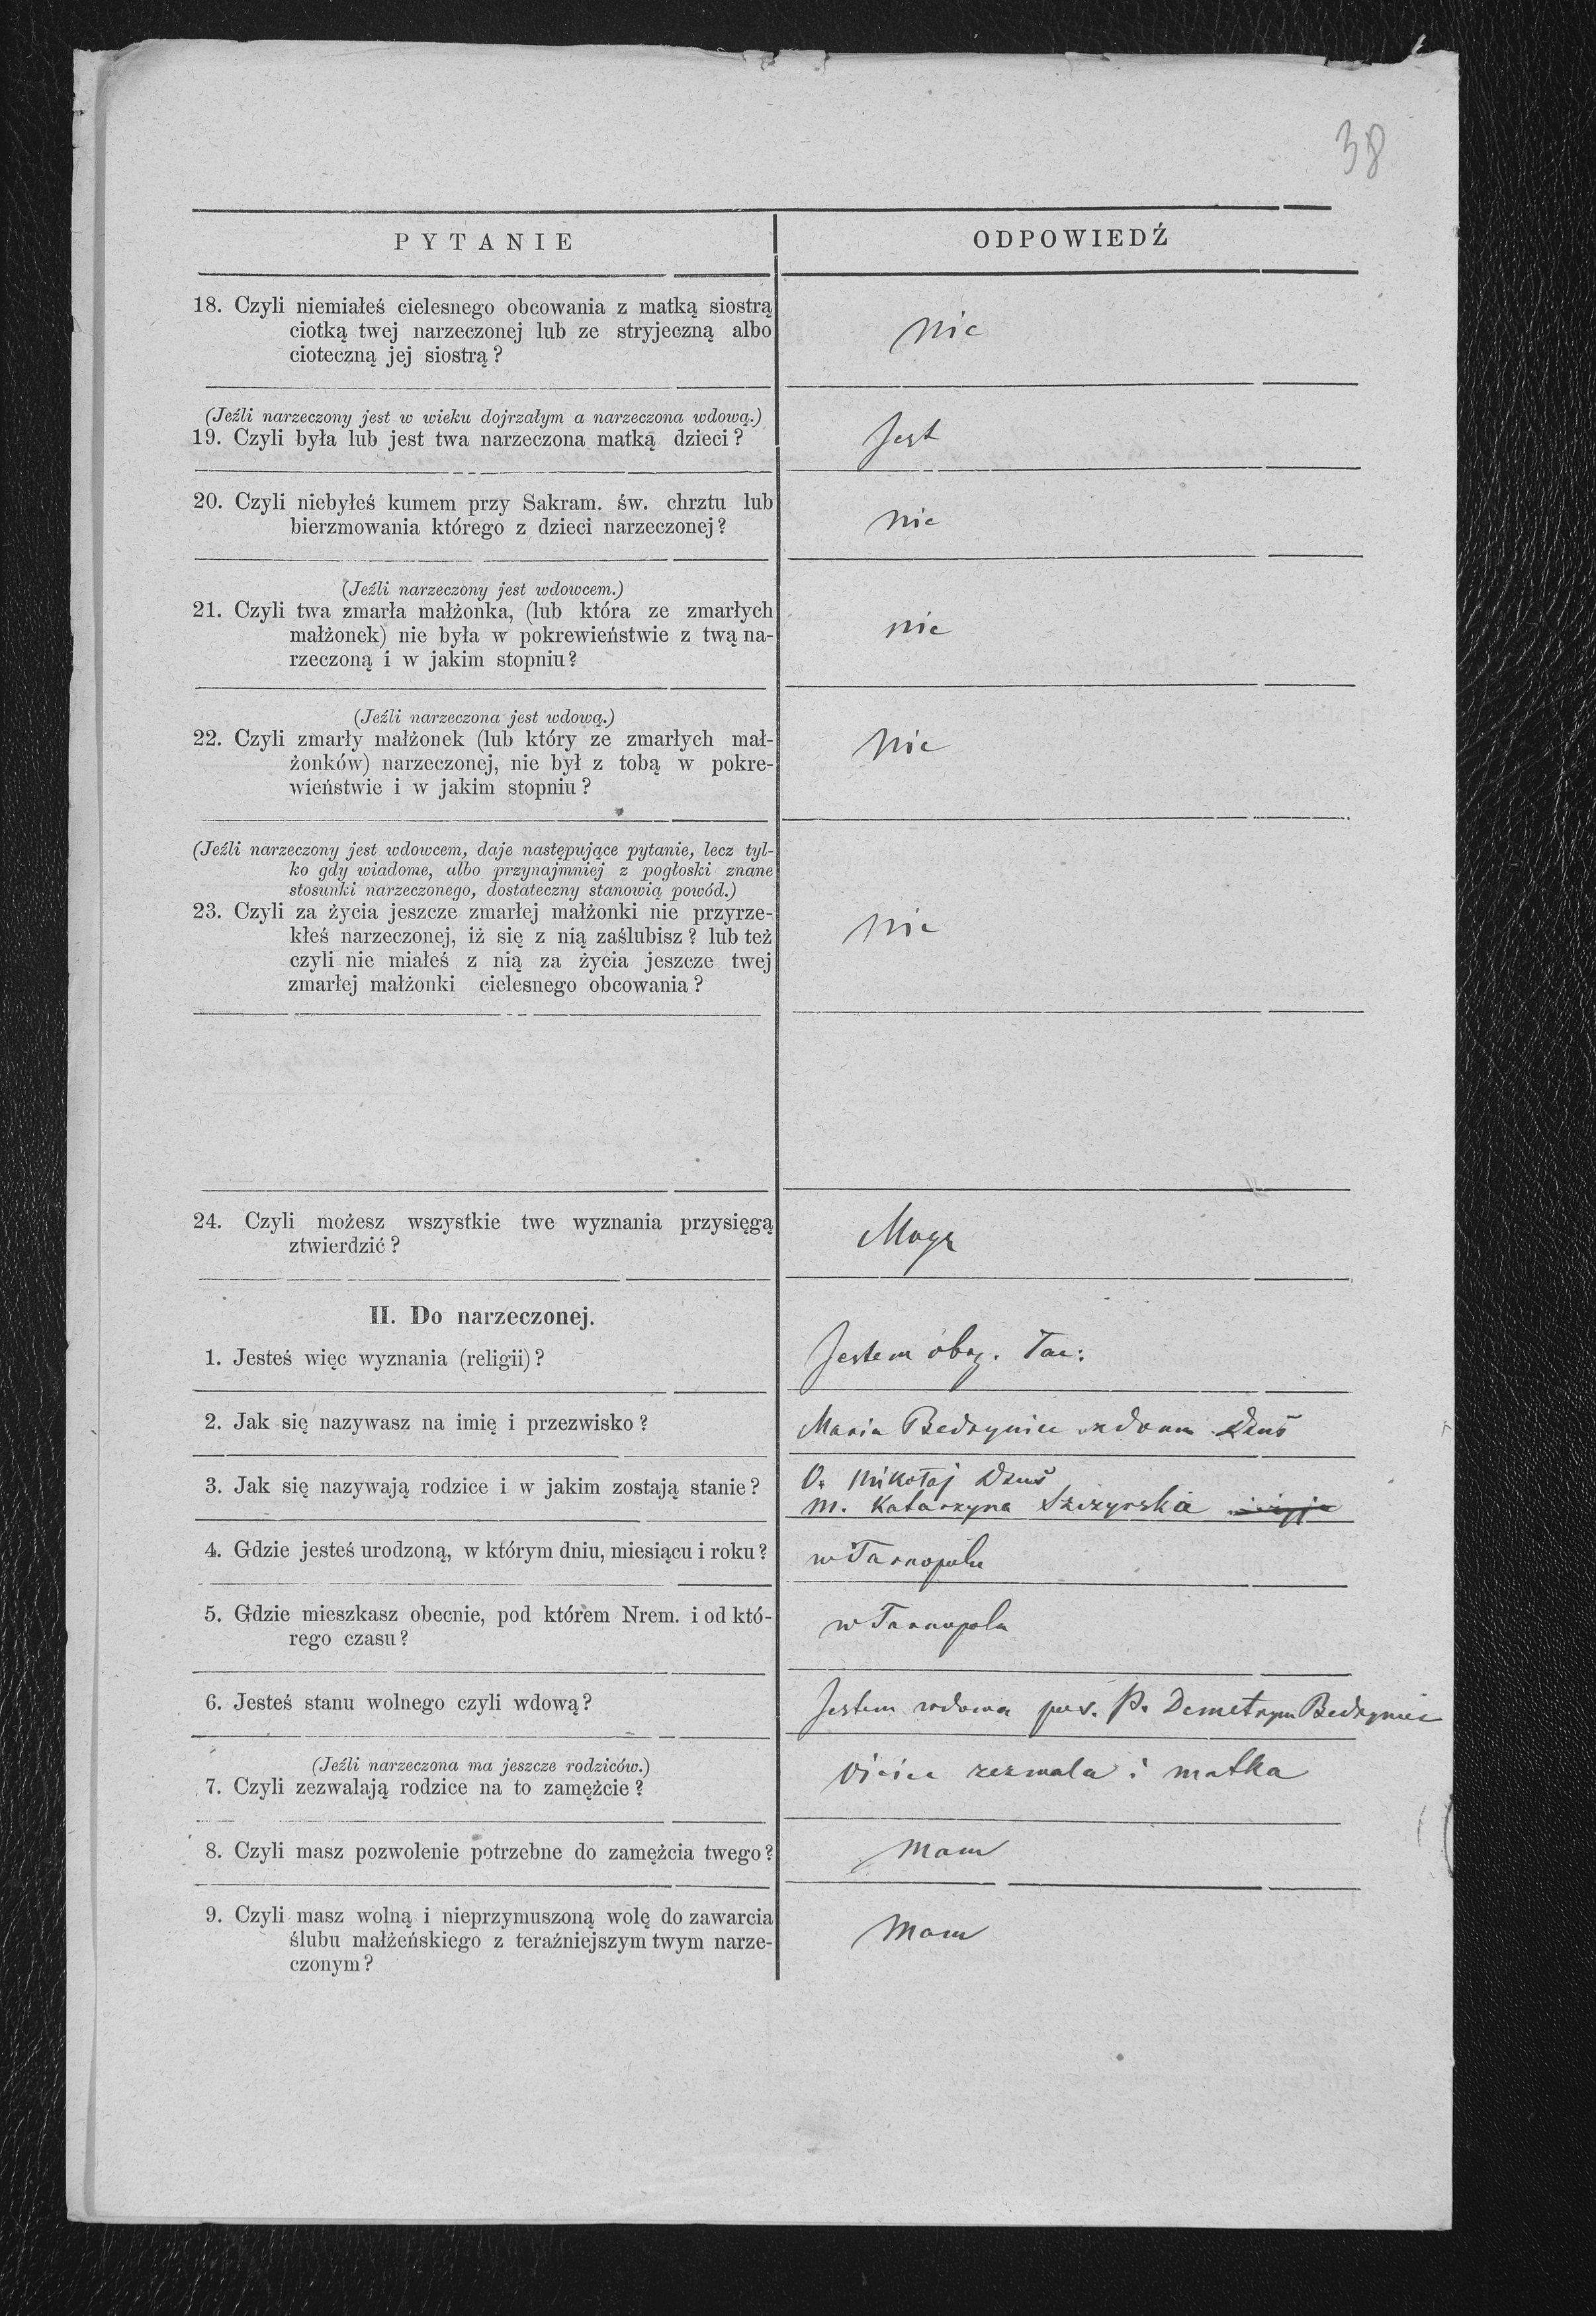 38
PYTANIE
ODPOWIEDŹ
18. Czyli niemiałeś cielesnego obcowania z matką siostrą
ciotką twej narzeczonej lub ze stryjeczną albo
cioteczną jej siostrą?
nie
(Jeźli narzeczony jest w wieku dojrzałym a narzeczona wdową.)
19. Czyli była lub jest twa narzeczona matką dzieci?
Jest
20. Czyli niebyłeś kumem przy Sakram. św. chrztu lub
bierzmowania którego z dzieci narzeczonej?
nie
(Jeźli narzeczony jest wdowcem.)
21. Czyli twa zmarła małżonka, (lub która ze zmarłych
małżonek) nie była w pokrewieństwie z twą na-
rzeczoną i w jakim stopniu?
nie
(Jeźli narzeczona jest wdową.)
22. Czyli zmarły małżonek (lub który ze zmarłych mał-
żonków) narzeczonej, nie był z tobą w pokre-
wieństwie i w jakim stopniu?
nie
(Jeźli narzeczony jest wdowcem, daje następujące pytanie, lecz tyl-
ko gdy wiadome, albo przynajmniej z pogłoski znane
stosunki narzeczonego, dostateczny stanowią powód.)
23. Czyli za życia jeszcze zmarłej małżonki nie przyrze-
kłeś narzeczonej, iż się z nią zaślubisz? lub też
czyli nie miałeś z nią za życia jeszcze twej
zmarłej małżonki cielesnego obcowania?
nie
24. Czyli możesz wszystkie twe wyznania przysięgą
ztwierdzić?
Mogę
II. Do narzeczonej.
1. Jesteś więc wyznania (religii)?
Jestem obrz. łac:
2. Jak się nazywasz na imię i przezwisko?
Maria Bedryniec z domu Dzuś
3. Jak się nazywają rodzice i w jakim zostają stanie?
O. Mikołaj Dzuś
M. Katarzyna
4. Gdzie jesteś urodzoną, w którym dniu, miesiącu i roku?
w Tarnopolu
5. Gdzie mieszkasz obecnie, pod którem Nrem. i od któ-
rego czasu?
w Tarnopolu
6. Jesteś stanu wolnego czyli wdową?
Jestem wdowa P. Demetrym Bedryniec
(Jeźli narzeczona ma jeszcze rodziców.)
7. Czyli zezwalają rodzice na to zamężcie?
zezwala i matka
8. Czyli masz pozwolenie potrzebne do zamężcia twego?
Mam
9. Czyli masz wolną i nieprzymuszoną wolę do zawarcia
ślubu małżeńskiego z teraźniejszym twym narze-
czonym?
Mam